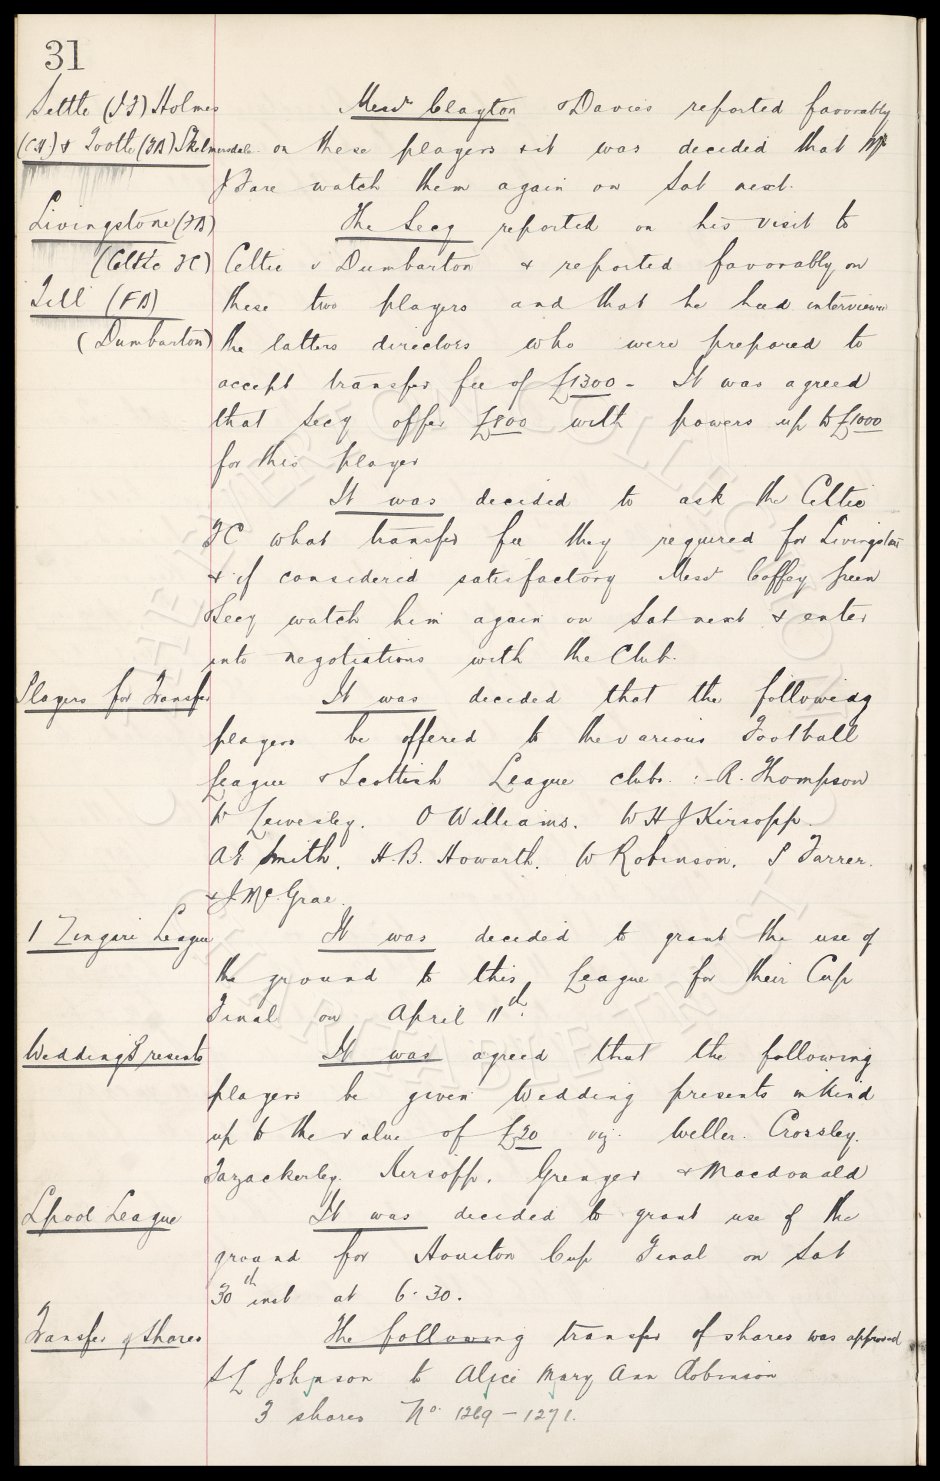 31
Settle (IF) Holmes
(CH) & Tootle (FB) Skelmersdale
Messrs Clayton & Davies reported favorably
on these players & it was decided that Mr
J Fare watch them again on Sat next.
Livingstone (FB)
(Celtic FC)
Tell (FB)
(Dumbarton)
The Secy reported on his visit to
Celtic v Dumbarton & reported favorably on
these two players and that he had interviewed
the latters directors who were prepared to
accept transfer fee of £1300 - It was agreed
that Secy offer £800 with powers up to £1000
for this player
It was decided to ask the Celtic
FC what transfer fee they required for Livingstone
& if considered satisfactory Messrs Coffey Green
& Secy watch him again on Sat next & enter
into negotiations with the Club.
Players for Transfer
It was decided that the following
players be offered to the various Football
League & Scottish League clubs :- R. Thompson
W Lewesley. O Williams. W H J Kirsopp.
A E Smith. H. B. Howarth. W Robinson. S Farrer.
& J. McGrae.
I Zingari League
It was decided to grant the use of
the ground to this League for their Cup
Final on April 11th.
Wedding Presents
It was agreed that the following
players be given Wedding presents in Kind
up to the value of £20 viz. Weller. Crossley.
Fazackerley. Kirsopp. Grenyer & Macdonald
Lpool League
It was decided to grant use of the
ground for Houston Cup Final on Sat
30th inst at 6.30.
Transfer of Shares
The following transfer of shares was approved
S L Johnson to Alice Mary Ann Robinson
3 shares No. 1269 - 1271.
THE EVERTON COLLECTION
CHARITABLE TRUST